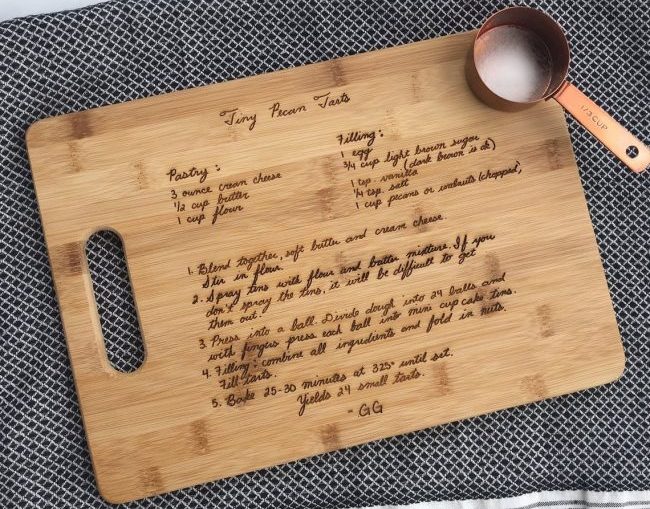 Tiny Pecan Tarts
Pastry :
3 ounce cream cheese
1/2 cup butter
1 cup flour
Filling :
1 egg
3/4 cup light brown sugar
(dark brown is ok)
1 tsp vanilla
1/4 tsp. salt
1 cup pecans or walnuts (chopped)
1. Blend together, soft butter and cream cheese.
Stir in flour.
2. Spray tins with flour and butter mixture. If you
don't spray the tins, it will be difficult to get
them out!
3. Press into a ball. Divide dough into 24 balls and
with fingers press each ball into mini cupcake tins.
4. Filling: combine all ingredients and fold in nuts.
Fill tarts.
5. Bake 25-30 minutes at 325° until set.
Yields 24 small tarts.
- GG
1/3 CUP